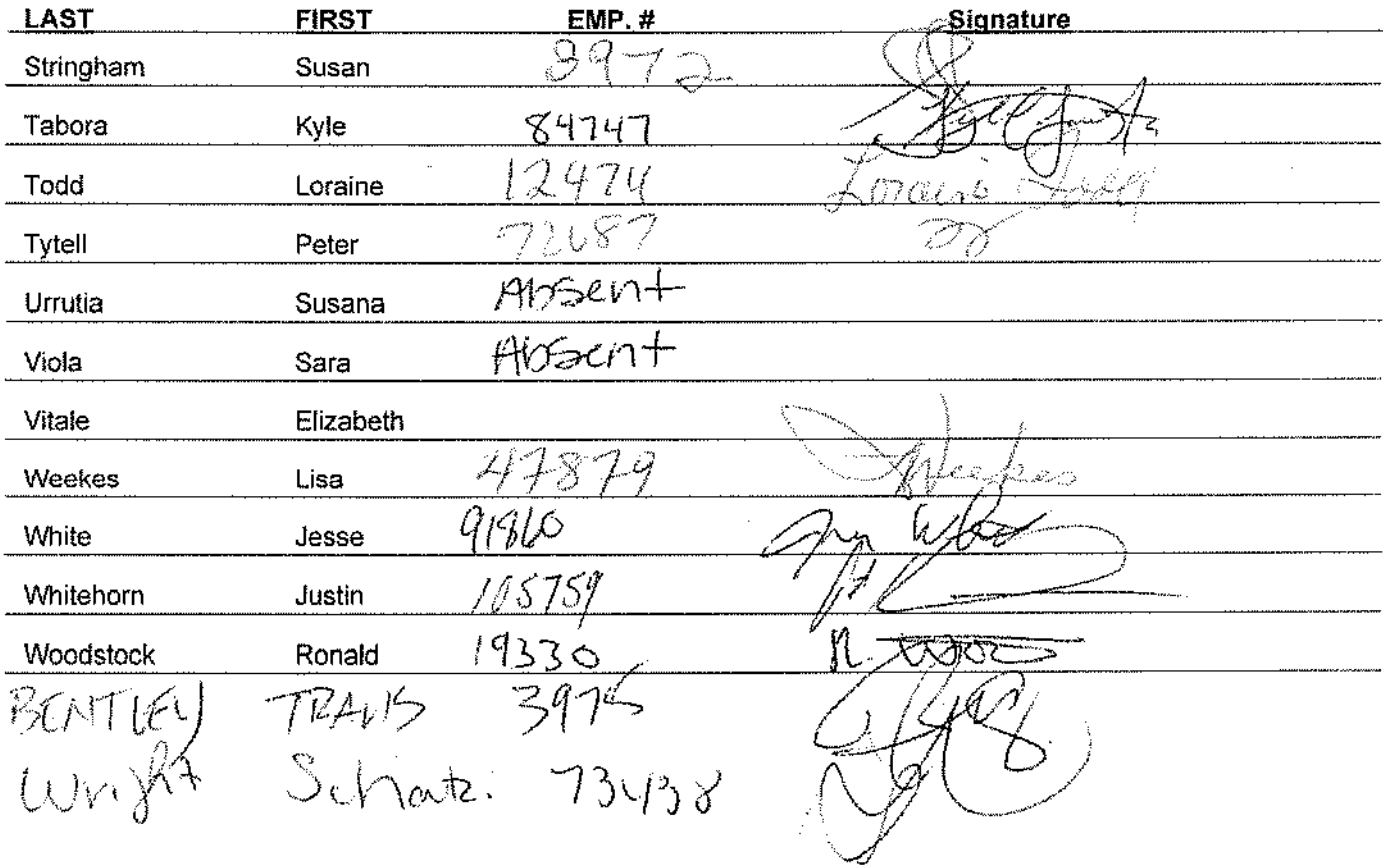 LAST FIRST EMP. # Signature
Stringham Susan 8972
Tabora Kyle 84747
Todd Loraine 12474 Loraine Todd
Tytell Peter 72687
Urrutia Susana Absent
Viola Sara Absent
Vitale Elizabeth
Weekes Lisa 47879 Weekes
White Jesse 91860
Whitehorn Justin 105759
Woodstock Ronald 19330 R.
BENTLEY TRAVIS 3975
Wright Schatzi 73438